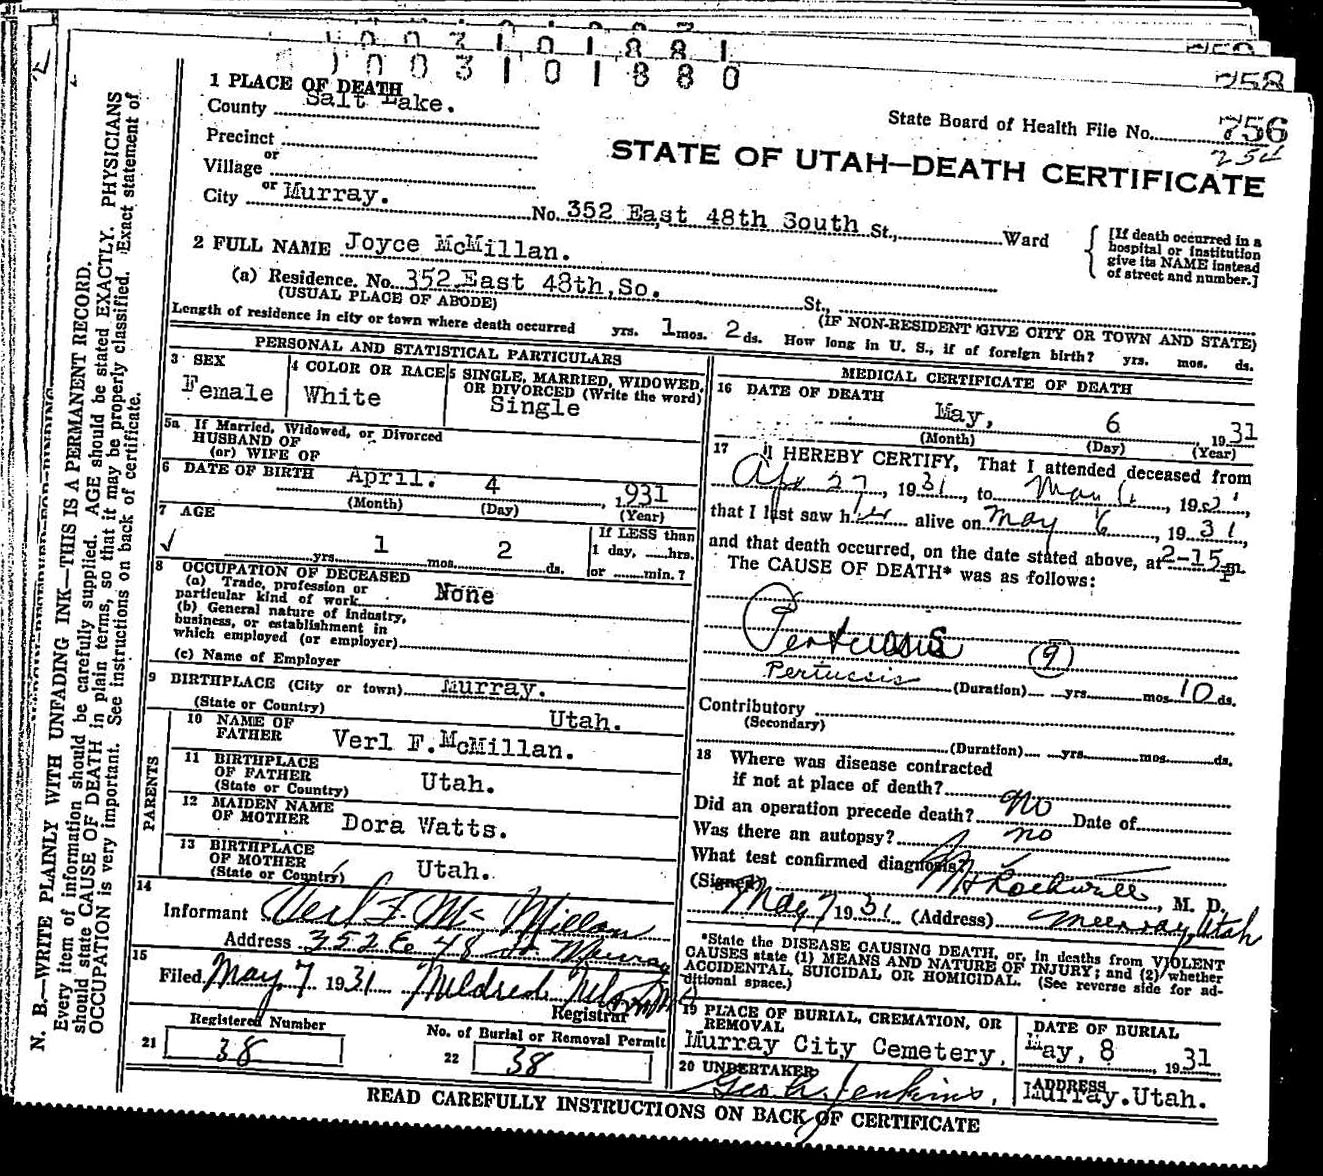 1 0 0 3 1 0 1 8 8 0
758
1 PLACE OF DEATH
County Salt Lake.
State Board of Health File No. 756
254
Precinct
or
Village
STATE OF UTAH—DEATH CERTIFICATE
or
City Murray. No. 352 East 48th South St., Ward
[If death occurred in a
hospital or institution
give its NAME instead
of street and number.]
2 FULL NAME Joyce McMillan.
(a) Residence. No. 352 East 48th, So. St.,
(USUAL PLACE OF ABODE) (IF NON-RESIDENT GIVE CITY OR TOWN AND STATE)
Length of residence in city or town where death occurred yrs. 1 mos. 2 ds. How long in U. S., if of foreign birth? yrs. mos. ds.
PERSONAL AND STATISTICAL PARTICULARS
3 SEX
Female
4 COLOR OR RACE
White
5 SINGLE, MARRIED, WIDOWED,
OR DIVORCED (Write the word)
Single
5a If Married, Widowed, or Divorced
HUSBAND OF
(or) WIFE OF
6 DATE OF BIRTH April. 4 , 1931
(Month) (Day) (Year)
7 AGE
✓ yrs. 1 mos. 2 ds.
If LESS than
1 day, hrs.
or min.?
8 OCCUPATION OF DECEASED
(a) Trade, profession or
particular kind of work None
(b) General nature of industry,
business, or establishment in
which employed (or employer)
(c) Name of Employer
9 BIRTHPLACE (City or town) Murray.
(State or Country) Utah.
PARENTS
10 NAME OF
FATHER Verl F. McMillan.
11 BIRTHPLACE
OF FATHER
(State or Country) Utah.
12 MAIDEN NAME
OF MOTHER Dora Watts.
13 BIRTHPLACE
OF MOTHER
(State or Country) Utah.
14
Informant Verl F. McMillan
Address 352 E 48 So. Murray
15
Filed May, 7 1931 Mildred
Registrar
Registered Number
21 38
No. of Burial or Removal Permit
22 38
MEDICAL CERTIFICATE OF DEATH
16 DATE OF DEATH
May, 6 , 1931
(Month) (Day) (Year)
17 I HEREBY CERTIFY, That I attended deceased from
Apr 27, 1931, to May 6, 1931
that I last saw her alive on May 6, 1931,
and that death occurred, on the date stated above, at 2-15 p m.
The CAUSE OF DEATH* was as follows:
Pertussis (9)
Pertussis (Duration) yrs. mos. 10 ds.
Contributory
(Secondary)
(Duration) yrs. mos. ds.
18 Where was disease contracted
if not at place of death?
Did an operation precede death? No Date of
Was there an autopsy? no
What test confirmed diagnosis?
(Signed) Rockwell, M. D.
May 7 1931 (Address) Murray, Utah
*State the DISEASE CAUSING DEATH, or, in deaths from VIOLENT
CAUSES state (1) MEANS AND NATURE OF INJURY; and (2) whether
ACCIDENTAL, SUICIDAL OR HOMICIDAL. (See reverse side for ad-
ditional space.)
19 PLACE OF BURIAL, CREMATION, OR
REMOVAL
Murray City Cemetery.
DATE OF BURIAL
May, 8 , 1931
20 UNDERTAKER
Geo. A. Jenkins,
ADDRESS
Murray. Utah.
READ CAREFULLY INSTRUCTIONS ON BACK OF CERTIFICATE
N. B.—WRITE PLAINLY WITH UNFADING INK—THIS IS A PERMANENT RECORD.
Every item of information should be carefully supplied. AGE should be stated EXACTLY. PHYSICIANS
should state CAUSE OF DEATH in plain terms, so that it may be properly classified. Exact statement of
OCCUPATION is very important. See instructions on back of certificate.